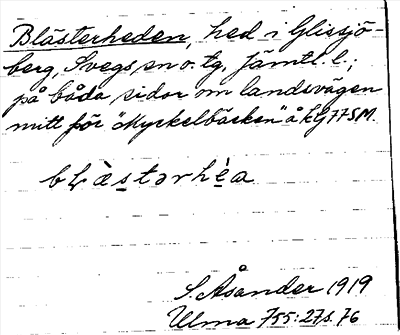 Blästerheden, hed i Glissjö-
berg, Svegs sn o. tg, Jämtl. l.;
på båda sidor om landsvägen
mitt för "Myckelbäcken" å kG 77 SM.
bLästərhèa
S. Åsander 1919
Ulma 755:27 s. 76